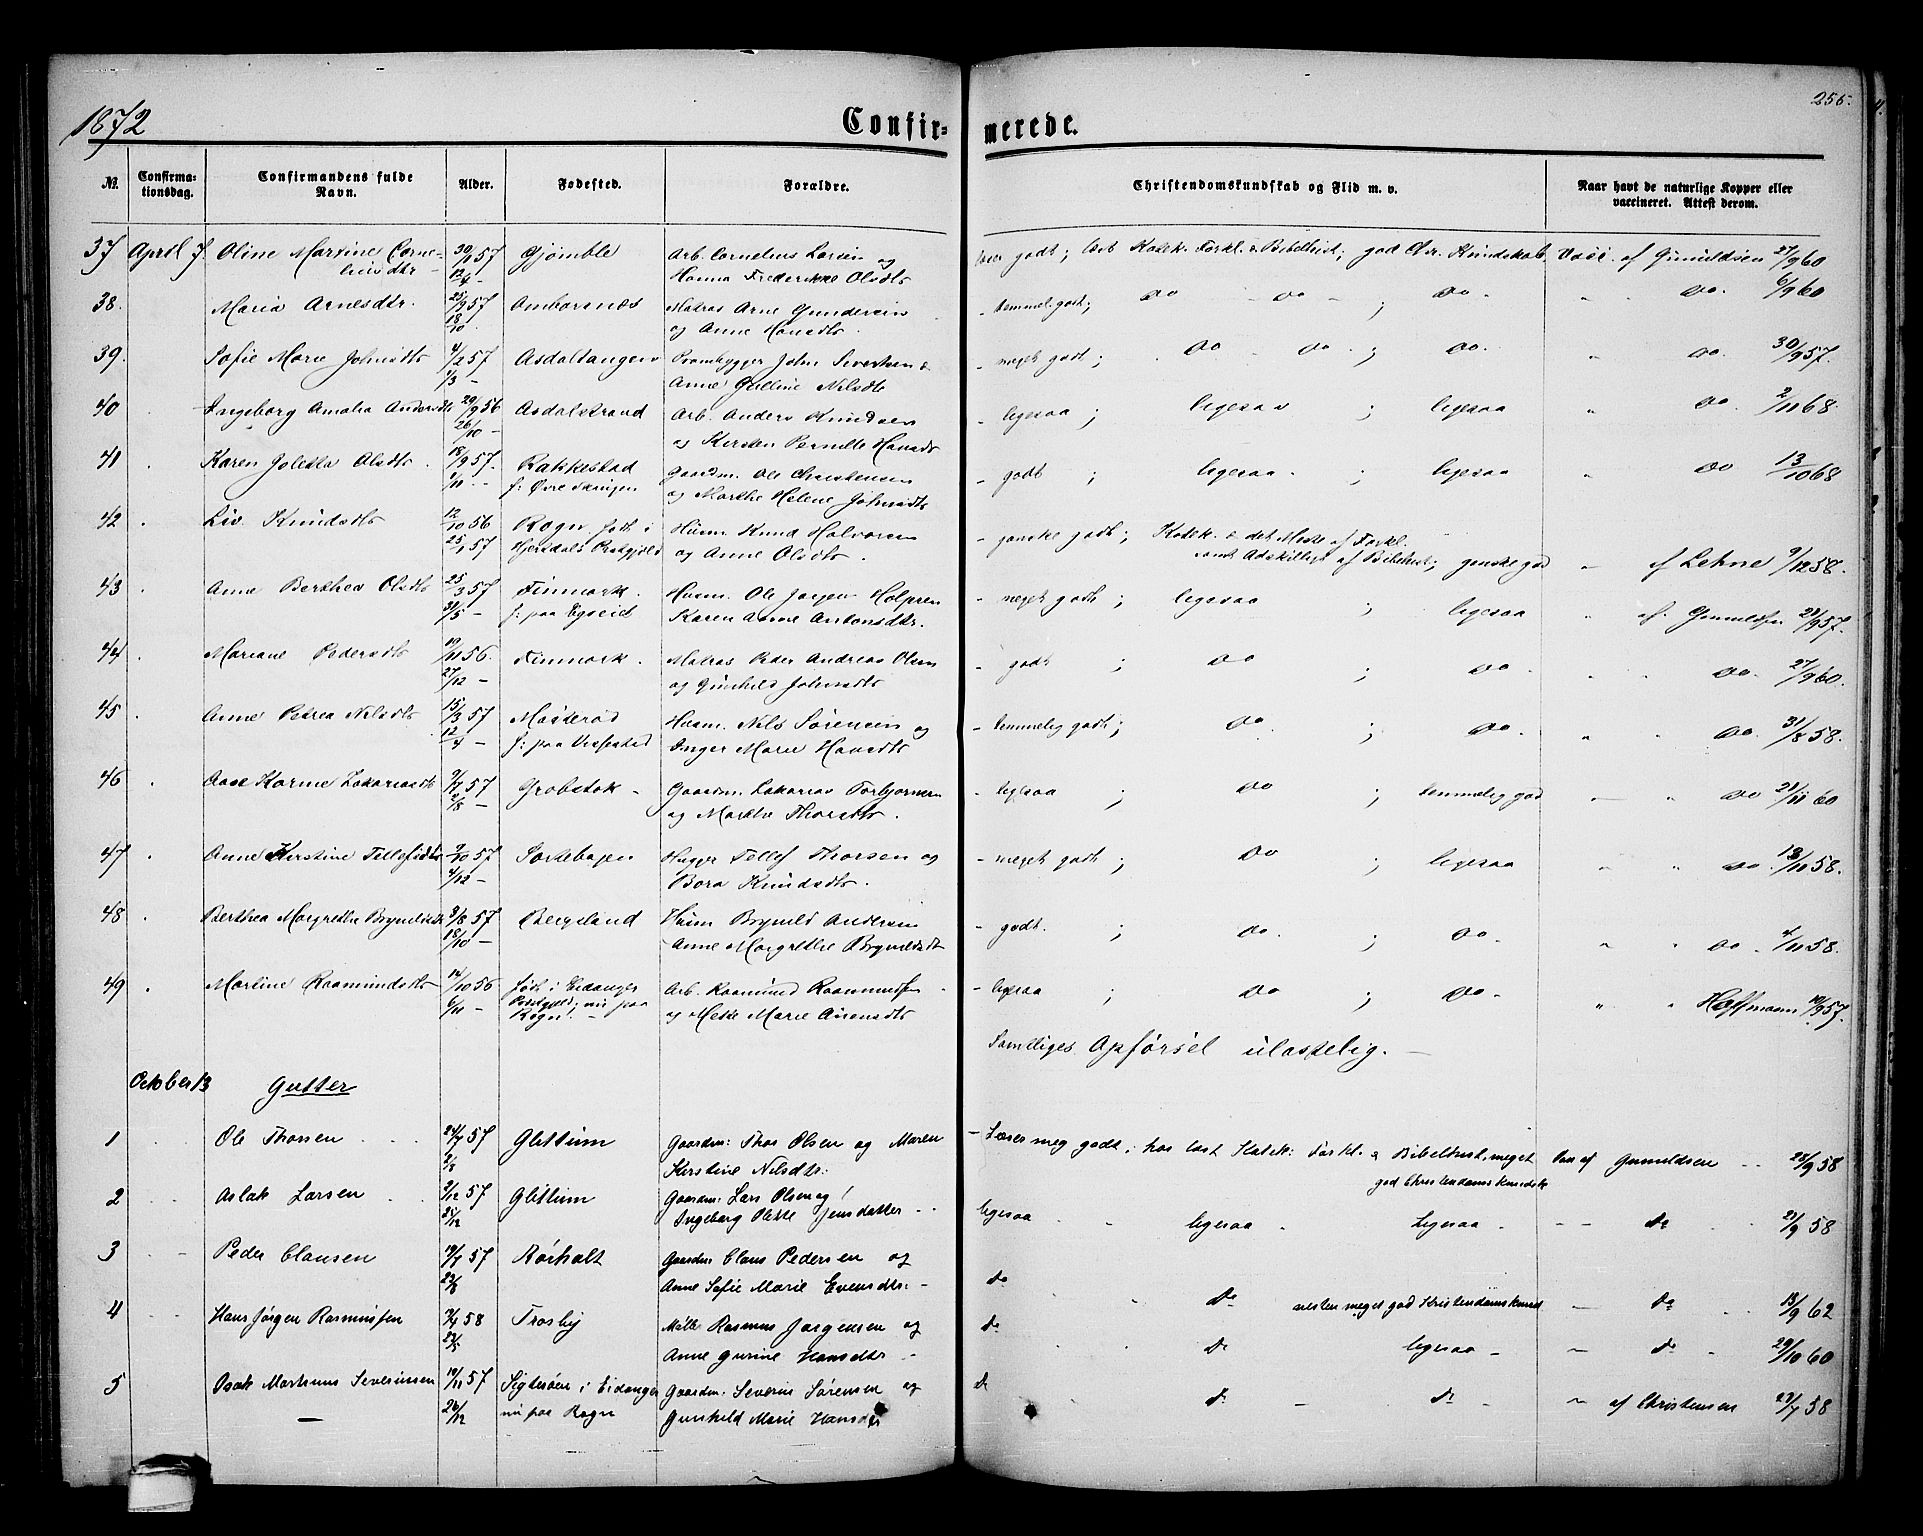 1872
Confirmerede.
255.
No.
Confirmationsdag.
Confirmandens fulde Navn.
Alder.
Fødested.
Forældre.
Christendomskundskab og Flid m. v.
Naar havt de naturlige Kopper eller vaccineret. Attest derom.
37 April 7 Oline Martine Corneliusdtr 57 Gjømle Arb. Cornelius Larsen og
Hanna Frederikke Olsdtr
godt; læst Katek. Forkl. & Bibelhist; god Chr. Kundskab Vacc. af Gunuldsen 27/9 60
38. Maria Arnesdtr. 25/9 57 18/10 Matros Arne Gundersen
og Anne Hansdtr.
- temmel. godt; do - do - ; do. " do. 6/9 60
39. Sofie Marie Johnsdtr 4/2 57 1/3 - Asdaltangen John Severtsen &
Anne Gulline Nilsdtr
- meget godt; do - do. ; do. " do. 30/9 57.
40 Ingeborg Amalia Andersdtr 29/9 56 26/10 - Asdalstrand Arb. Anders Knudsen
og Kirsten Pernille Hansdtr
- ligesaa ; ligesaa ; ligesaa " do. 2/11 68.
41 Karen Joletta Olsdtr. 18/9 57. 1/11 - Rakkestad
f: Øvre
Gaardm. Ole Christensen
og Marthe Helene Johnsdtr
- godt ; ligesaa. ; ligesaa " do 13/10 68
42 Liv Knudsdtr 12/10 56 25/1 57 Rogn, født i
Hjerdals Prstgjeld
Husm. Knud Halvorsen
og Anne Olsdtr.
- ganske godt; Katek. & det Meste af Forkl.
samt Adskilligt af Bibelhist; ganske god - af Lehne 9/12 58.
43 Anne Berthea Olsdtr 25/3 57 31/5 - Finmark.
f: paa Egseid
Husm. Ole Jørgen
Karen Anne Antonsdtr.
- meget godt ; ligesaa ; ligesaa " af: 28/9 57.
44 Mariane Pedersdtr 19/11 56. 27/12 - Finmark. Matros Peder Andreas Olsen
og Gunhild Johnsdtr
- godt ; do ; do. do. 27/9 60.
45 Anne Petrea Nilsdtr 15/3 57 12/4 - Møsterød
f: paa
Husm. Nils Sørensen og
Inger Marie Hansdtr
- temmelig godt; do. ; do. " do. 31/8 58.
46 Aase Karine Zakariasdtr 57 Grobstok - Gaardm. Zakarias Torbjørnsen
og Marthe Thorsdtr.
- ligesaa ; do ; temmelig god - " do 28/11 60
47 Anne Kirstine Tellefsdtr 9/10 57 4/12 - Tellef Thorsen og
Bora Knudsdtr.
- meget godt ; do ; ligesaa " do. 13/11 58.
48 Berthea Margrethe Brynildsdtr 3/8 57 18/10 - Bergsland Husm Brynild Andersen
Anne Margrethe Brynildsdtr
- godt. ; do. ; do. " do. 4/11 58.
49 Martine Raamundsdtr 14/10 56 6/11 - Født i Eidanger
Prstgjeld; nu paa
Rogn. -
Arb. Raamund Raamundsen
og Mette Marie
- ligesaa ; do ; do - " Hoffmann 10/9 57.
Samtliges Opførsel ulastelig. -
October 13 Gutter
1 Ole Thorsen 24/7 57 2/8 Glittum Gaardm: Thor Olsen og Maren
Kirstine Nilsdtr:
- Læser meg godt; har læst Katek: Forkl. & Bibelhist, meget
god Christendomskundsk
Vac af Gunuldsen 28/9 58
2 Aslak Larsen 2/12 57 25/12 Glittum Gaardm: Lars Olsen og
Ingeborg Olette Jensdatter
ligesaa ligesaa ligesaa - do 21/9 58
3 Peder Clausen 19/7 57 23/8 Rørholt Gaardm: Claus Pedersen og
Anne Sofie Marie Evensdtr: -
do do næsten meget god Kristendomskund - do 13/9 62
4 Hans Jørgen Rasmussen 58 Trosby Rasmus Jørgensen og
Anne Gurine Hansdtr -
do do ligesaa - do 29/10 60
5 Isak Markmus Severinsen 19/11 57 26/12 i Eidanger
nu paa Rogn
Gaardm: Severin Sørensen og
Gunhild Marie Hansdtr
do do - do - af Christensen 23/7 58